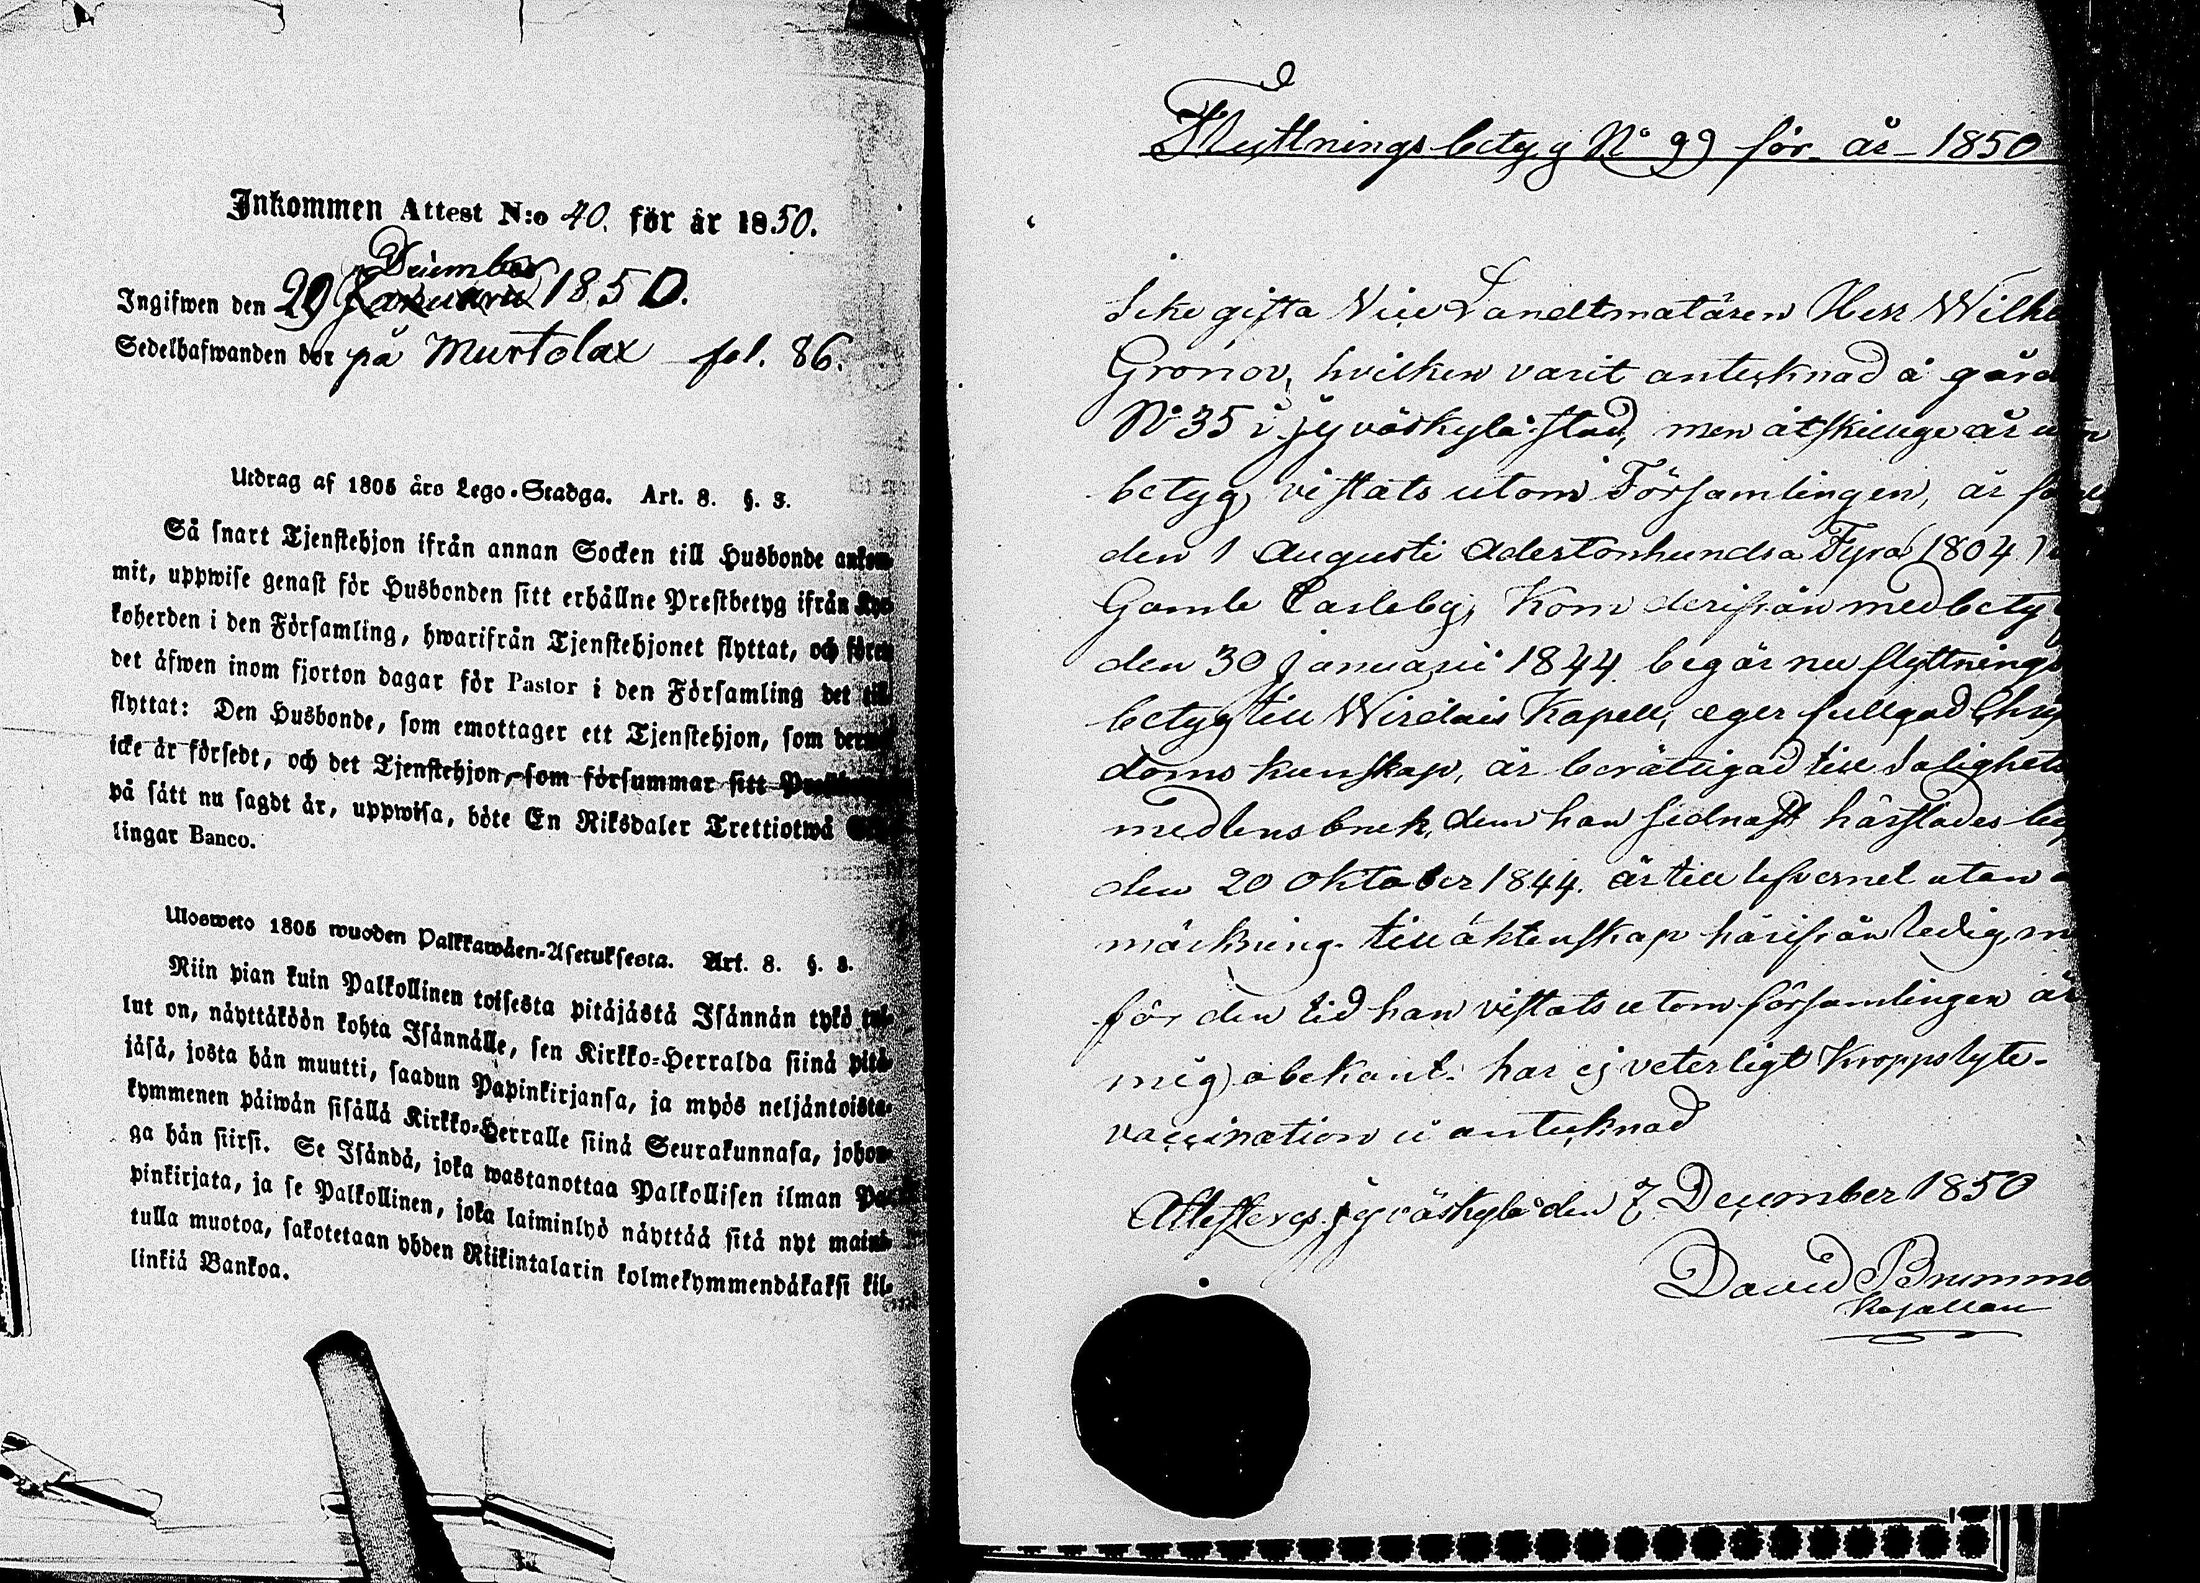 Inkommen Attest N:o 40. för år 1850.
December
Ingifwen den 29 Januarii 1850.
Sedelhafwanden bor på Murtolax fol. 86.
Utdrag af 1805 års Lego-Stadga. Art. 8. §. 3.
Så snart Tjenstehjon ifrån annan Socken till Husbonde ankom-
mit, uppwise genast för Husbonden sitt erhållne Prestbetyg ifrån Kyr-
koherden i den Församling, hwarifrån Tjenstehjonet flyttat, och förete
det äfwen inom fjorton dagar för Pastor i den Församling det till
flyttat: Den Husbonde, som emottager ett Tjenstehjon, som dermed
icke är försedt, och det Tjenstehjon, som försummar sitt
på sätt nu sagdt är, uppwisa, böte En Riksdaler Trettiotwå
lingar Banco.
Ulosweto 1805 wuoden Palkkawäen-Asetuksesta. Art. 8. §. 3.
Niin pian kuin Palkollinen toisesta pitäjästä Isännän tykö tul-
lut on, näyttäköön kohta Isännälle, sen Kirkko-Herralda siinä pitä-
jäsä, josta hän muutti, saadun Papinkirjansa, ja myös neljäntoista-
kymmenen päiwän sisällä Kirkko-Herralle siinä Seurakunnasa, johon-
ga hän siirsi. Se Isändä, joka wastanottaa Palkollisen ilman Pa-
pinkirjata, ja se Palkollinen, joka laiminlyö näyttää sitä nyt maini-
tulla muotoa, sakotetaan yhden Riikintalarin kolmekymmendäkaksi kil-
linkiä Bankoa.
Flyttningsbetyg N° 99 för år 1850
Icke gifta Vice Landtmätaren Herr Wilhe
Gronov, hvilken varit antecknad å gård
N° 35 i Jyväskylä stad, men åtskillige år utan
betyg vistats utom Församlingen, är född
den 1 Augusti Adertonhundra Fyra (1804)
Gamle Carleby, kom derifrån med betyg
den 30 Januarii 1844. begär nu flyttnings
betyg till Wirdois Kapell, eger fullgod Chris
doms kunskap, är berättigad till Salighets
medlens bruk, dem han sednast härstädes beg
den 20 Oktober 1844. är till lefvernet utan a
märkning. till äktenskap härifrån ledig, m
för den tid han vistats utom församlingen är
mig obekant. har ej veterligt kroppslyte.
vaccination ei antecknad
Attesteras Jyväskylä den 7 December 1850
David Brumme
Kapellan